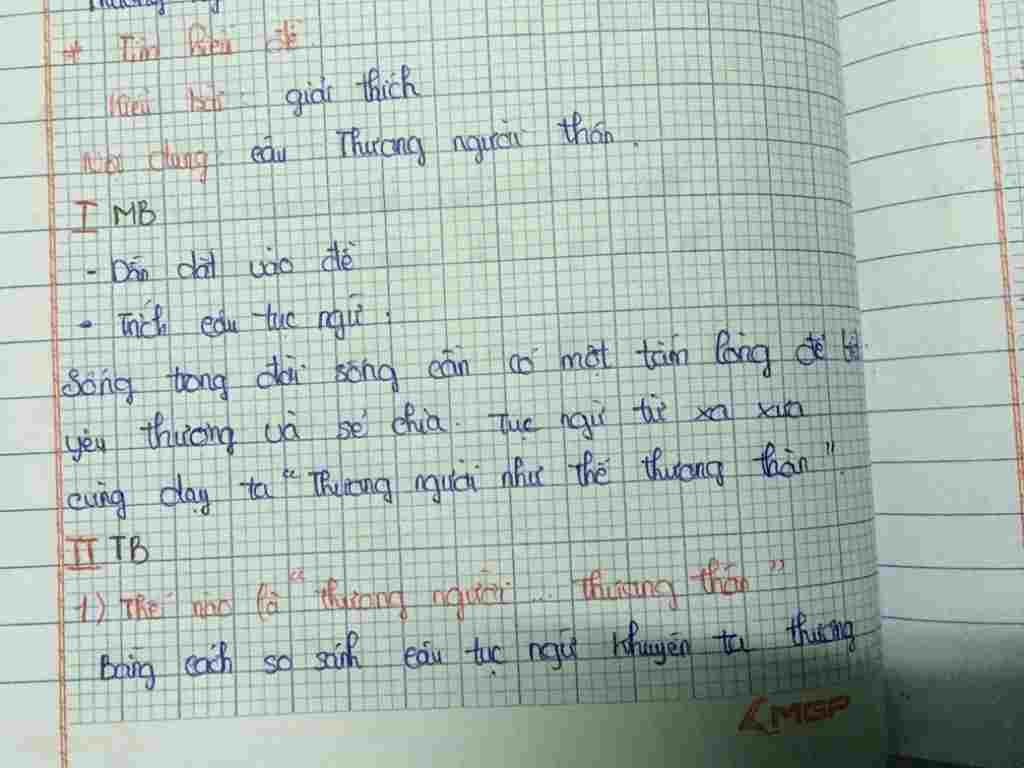 + Tìm hiểu đề
Kiểu bài: giải thích
Nội dung: câu Thương người thân.
I MB
- Dẫn dắt vào đề
- Trích câu tục ngữ.
Sống trong đời sống cần có một tấm lòng để
yêu thương và sẻ chia. Tục ngữ từ xa xưa
cũng dạy ta "Thương người như thể thương thân".
II TB
1) Thế nào là "thương người... thương thân"
Bằng cách so sánh câu tục ngữ khuyên ta thương
MGP